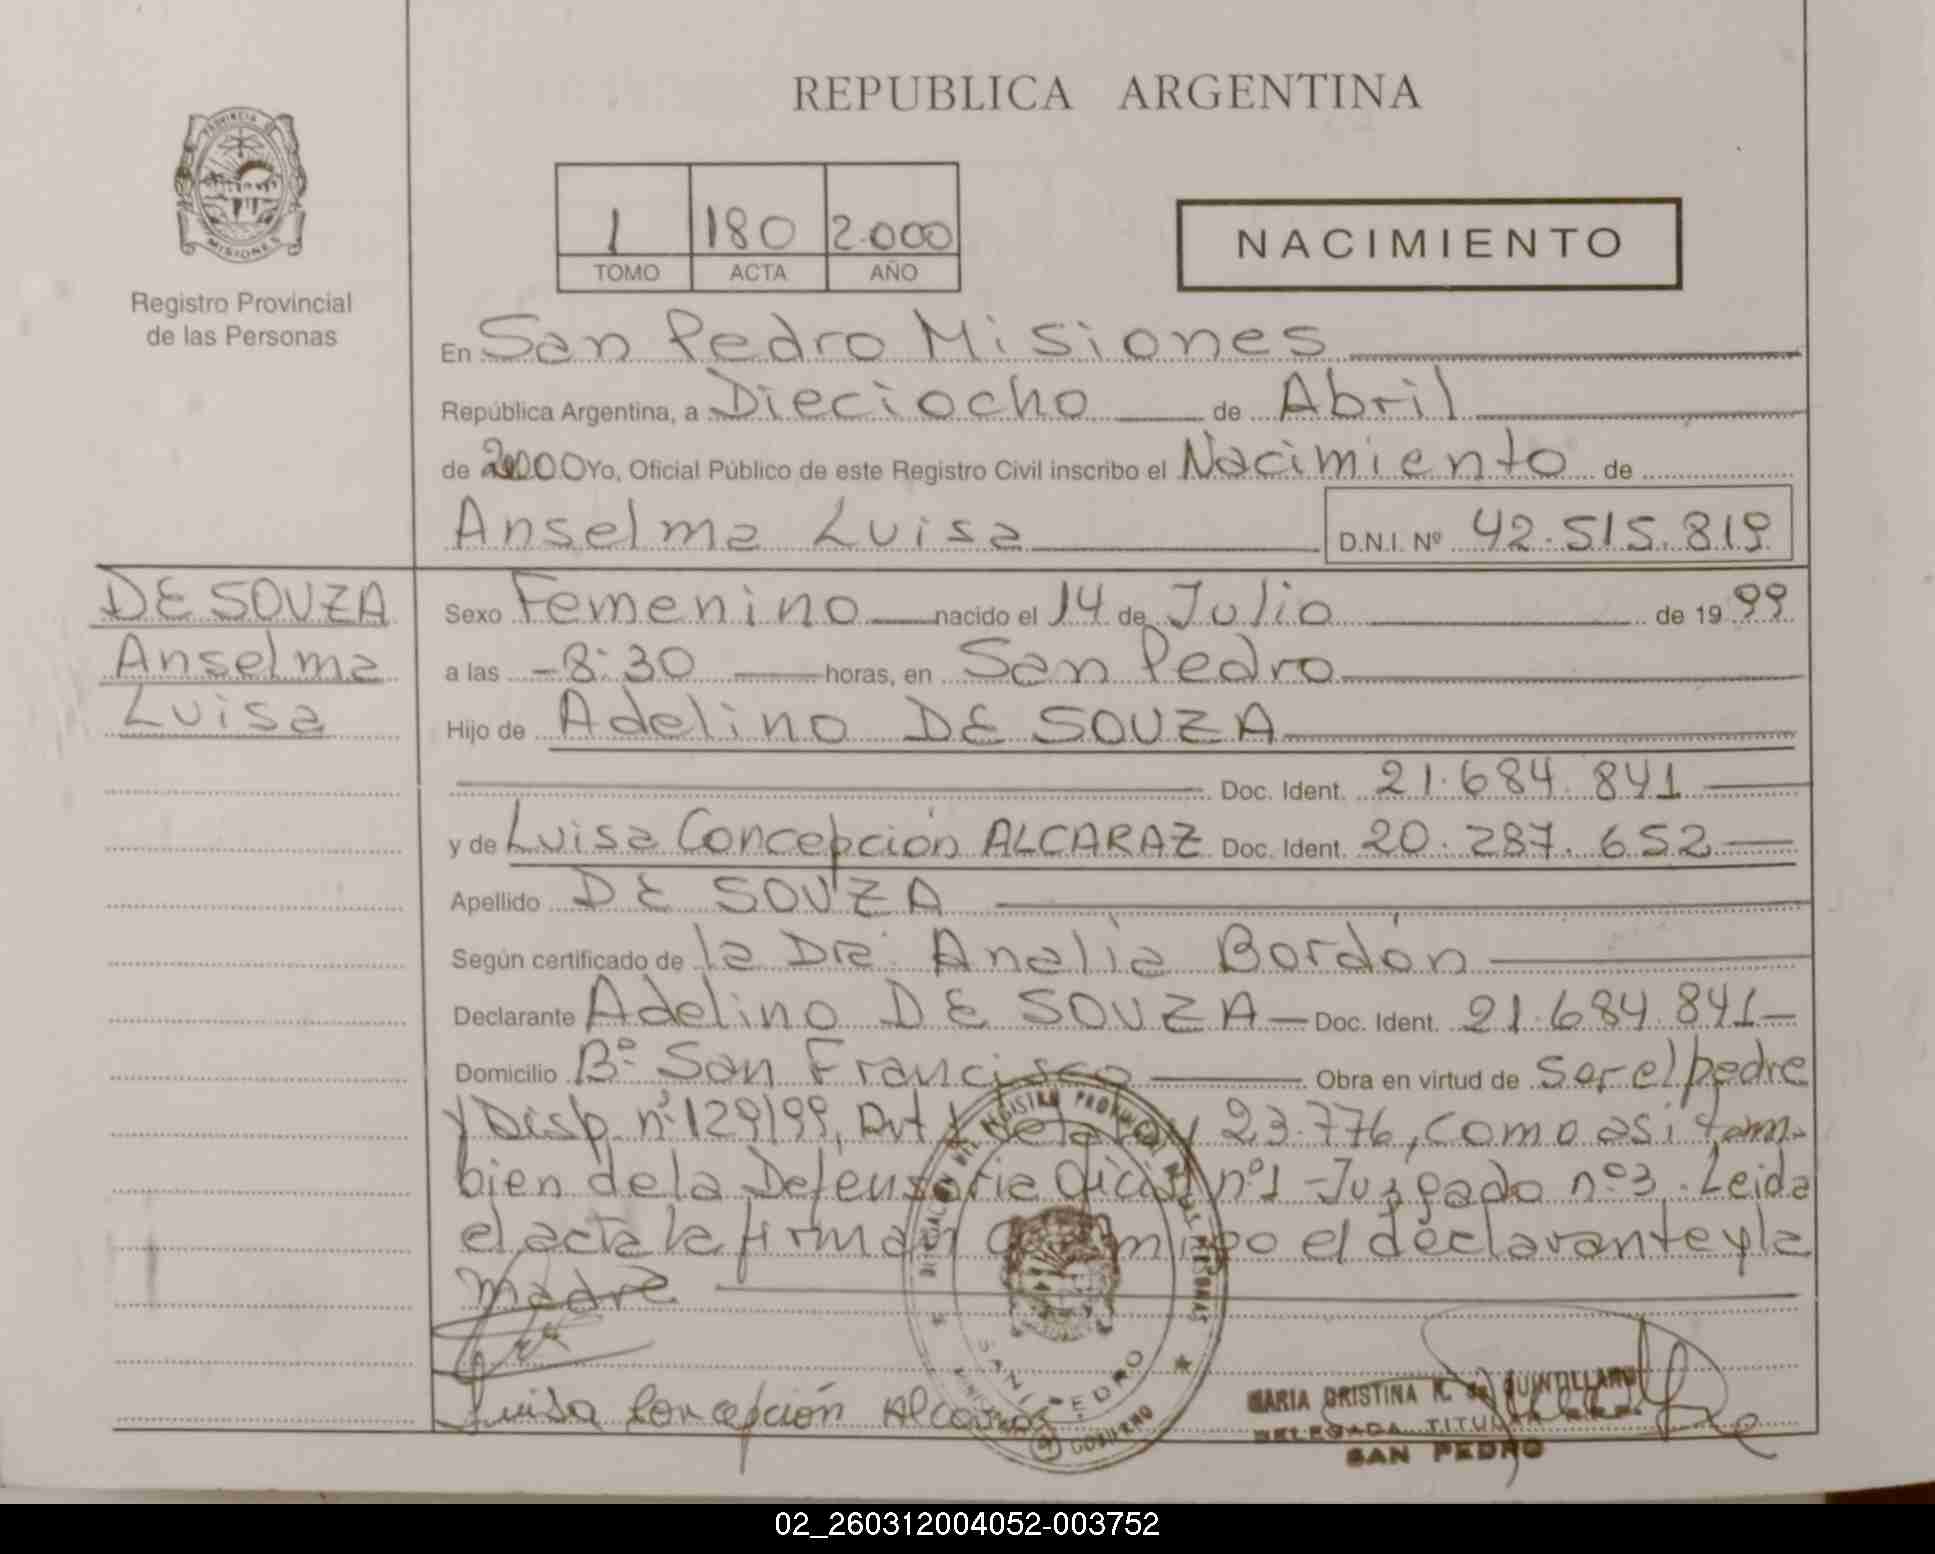 REPUBLICA ARGENTINA
PROVINCIA DE
MISIONES
Registro Provincial
de las Personas
1 180 2.000
TOMO ACTA AÑO
NACIMIENTO
En San Pedro Misiones
República Argentina, a Dieciocho de Abril
de 2000 Yo, Oficial Público de este Registro Civil inscribo el Nacimiento de
Anselma Luisa D.N.I. Nº 42.515.819
DE SOUZA
Anselma
Luisa
Sexo Femenino nacido el 14 de Julio de 1999
a las 8:30 horas, en San Pedro
Hijo de Adelino DE SOUZA
Doc. Ident. 21.684.841
y de Luisa Concepción ALCARAZ Doc. Ident. 20.287.652
Apellido DE SOUZA
Según certificado de la Dra. Analía Bordón
Declarante Adelino DE SOUZA Doc. Ident. 21.684.841
Domicilio Bº San Francisco Obra en virtud de ser el padre
y Disp. nº 129/99, Ley 23.776, como asi tam-
bien de la Defensoria Oficial nº1 - Juzgado nº3. Leida
el acta la firman conmigo el declarante y la
madre
Luisa Concepción Alcaraz
DEL REGISTRO PROVINCIAL DE LAS PERSONAS
SAN PEDRO
GOBIERNO
MARIA CRISTINA R. de QUINTILLAN
DELEGADA TITULAR
SAN PEDRO
02_260312004052-003752